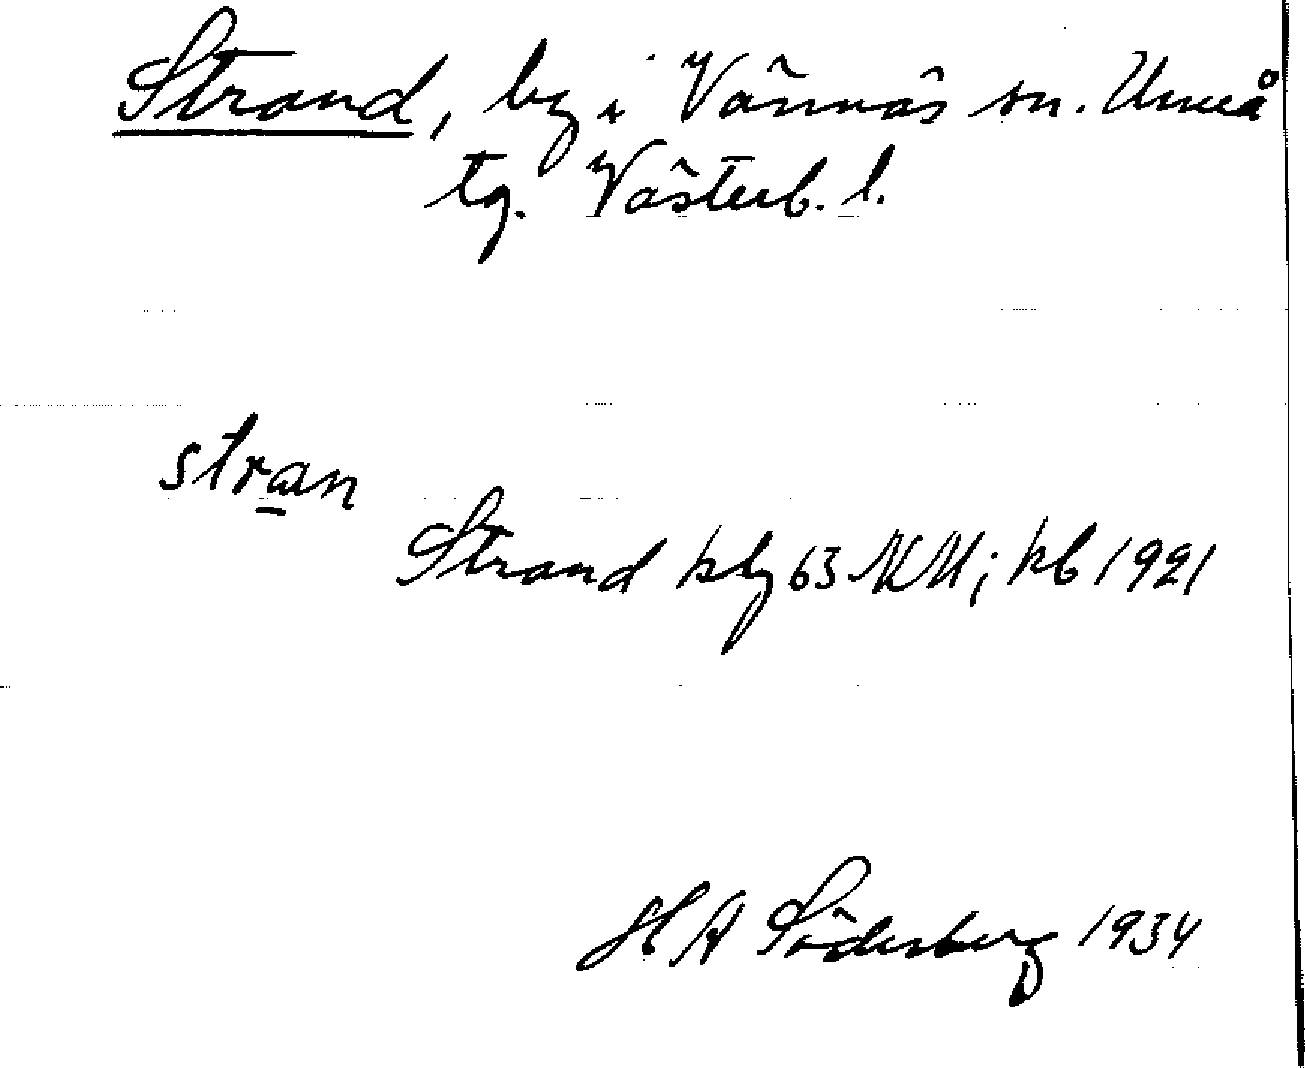 Strand, by i Vännäs sn. Umeå
tg. Västerb. l.
stran
Strand kbg 63 NV; kb 1921
H A Söderberg 1934